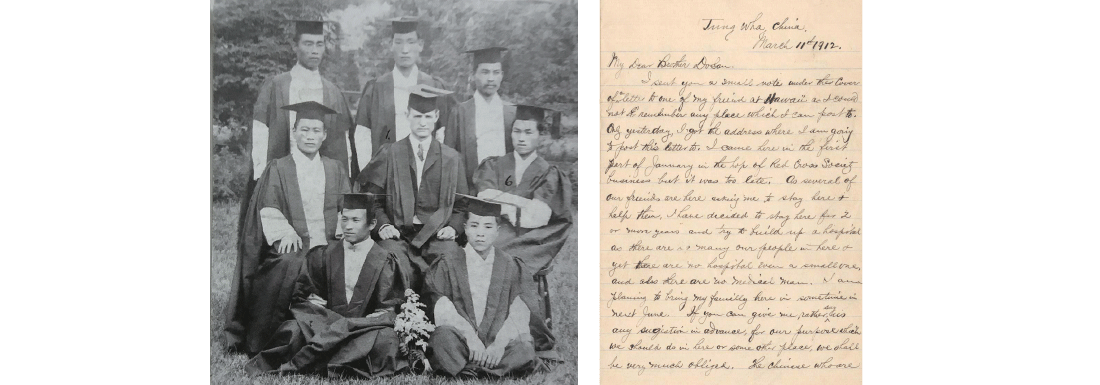 6
Tung Wha, China.
March 11th 1912.
My dear Brother Dosan
I sent you a small note under the Cover
of letter to one of my friend at Hawaii as I could
not remember any place which I can post to.
Only yesterday, I got the address where I am going
to post this letter to. I came here in the first
part of January in the hop of Red Cross Society
business but it was too late. As several of
our friends are here asking me to stay here &
help them, I have decided to stay here for 2
or more years and try to build up a hospital
as there are so many our people in here &
yet there are no hospital even a small one,
and also there are no medical man. I am
planing to bring my familly here in sometime in
next June. If you can give me, rather, say us
any sugistion in advance, for our purpose which
we should do in here or some other place, we shall
be very much obliged. The Chinese who are